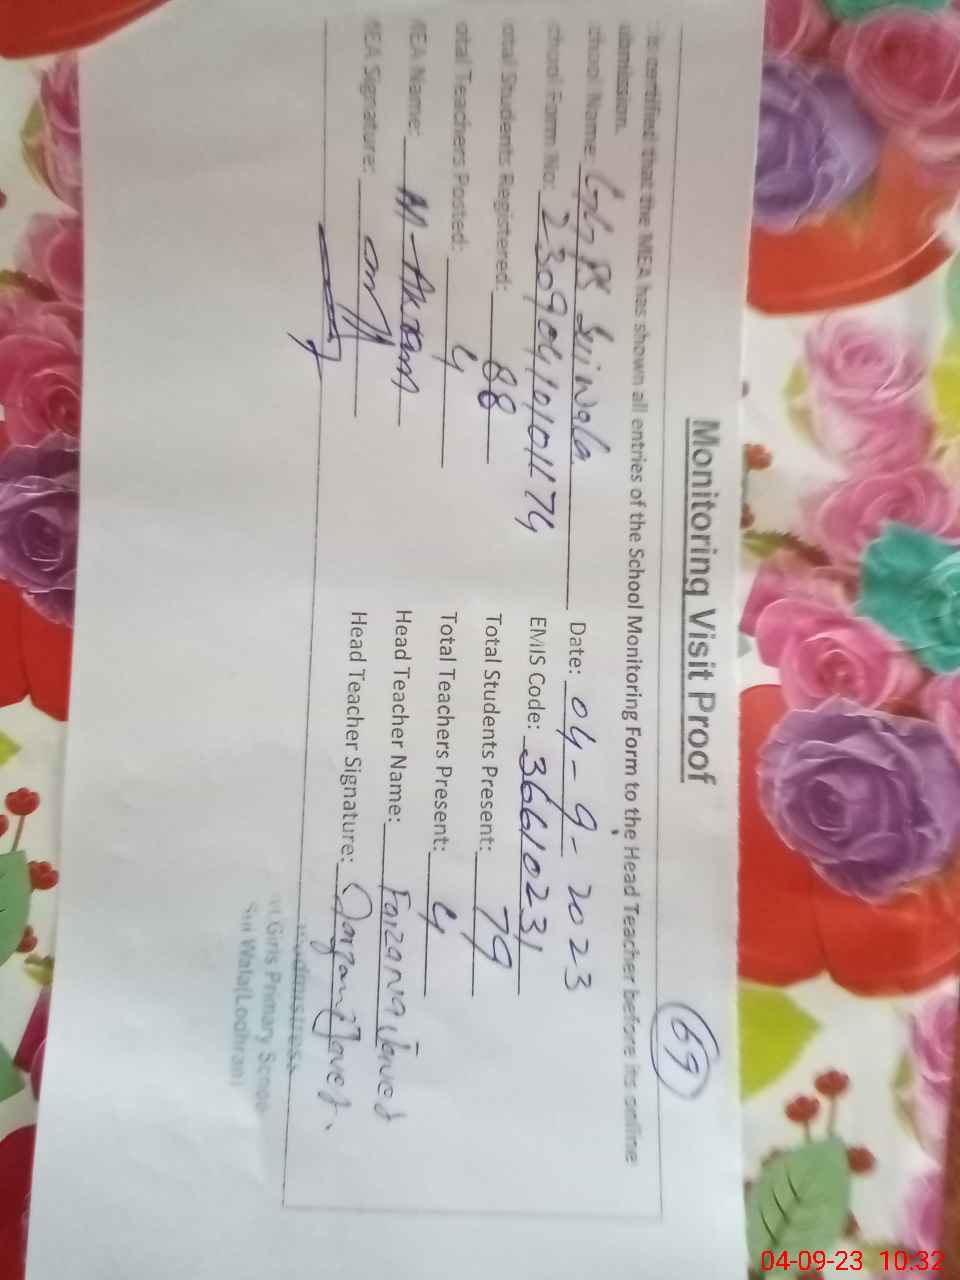 Monitoring Visit Proof
69
is certified that the MEA has shown all entries of the School Monitoring Form to the Head Teacher before its online
ubmission.
chool Name: GGPS Sui Wala Date: 04-9-2023
chool Form No: 23090410101174 EMIS Code: 36610231
otal Students Registered: 88 Total Students Present: 79
otal Teachers Posted: 4 Total Teachers Present: 4
MEA Name: M-Akram Head Teacher Name: Farzana Javed
MEA Signature: Head Teacher Signature: Farzana Javed.
Girls Primary School
Sui Wala(Lodhran)
04-09-23 10:32